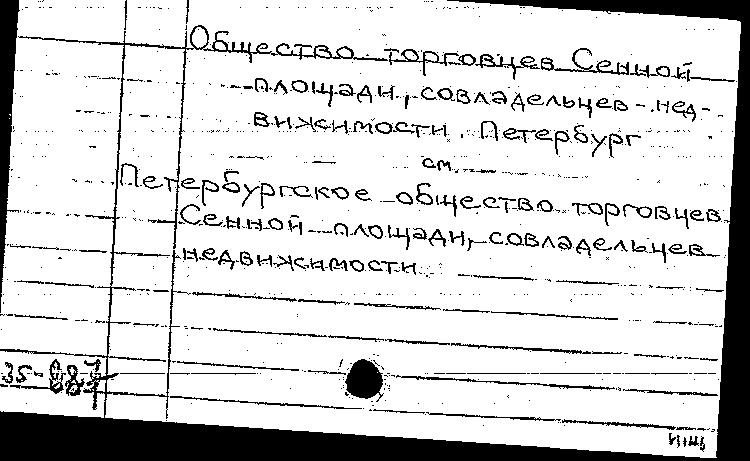 Общество торговцев Сенной
площади, совладельцев нед-
вижимости. Петербург
см.
Петербургское общество торговцев
Сенной площади, совладельцев
недвижимости